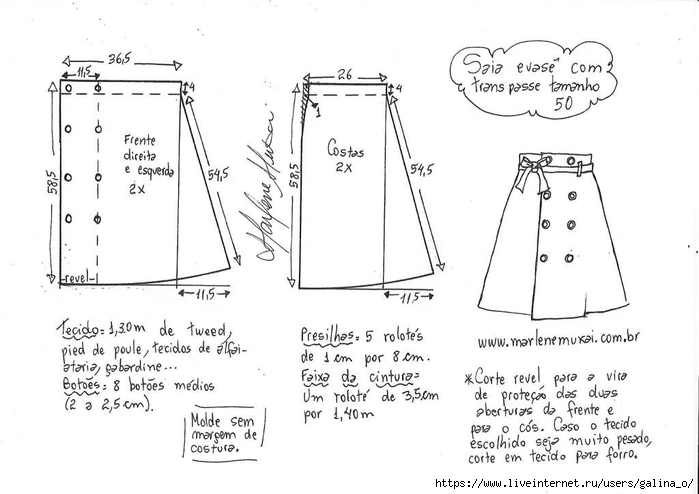 Saia evasê com
transpasse tamanho
50
36,5
11,5
4
Frente
direita
e esquerda
2x
58,5
54,5
revel
11,5
26
4
1
Costas
2x
58,5
54,5
11,5
Marlene Mukai
www.marlenemukai.com.br
Tecido = 1,30m de tweed,
pied de poule, tecidos de alfai-
ataria, gabardine...
Botões = 8 botões médios
(2 a 2,5cm).
Molde sem
margem de
costura.
Presilhas = 5 rolotés
de 1cm por 8cm.
Faixa da cintura =
Um roloté de 3,5cm
por 1,40m
*Corte revel para a vira
de proteção das duas
aberturas da frente e
para o cós. Caso o tecido
escolhido seja muito pesado,
corte em tecido para forro.
https://www.liveinternet.ru/users/galina_o/